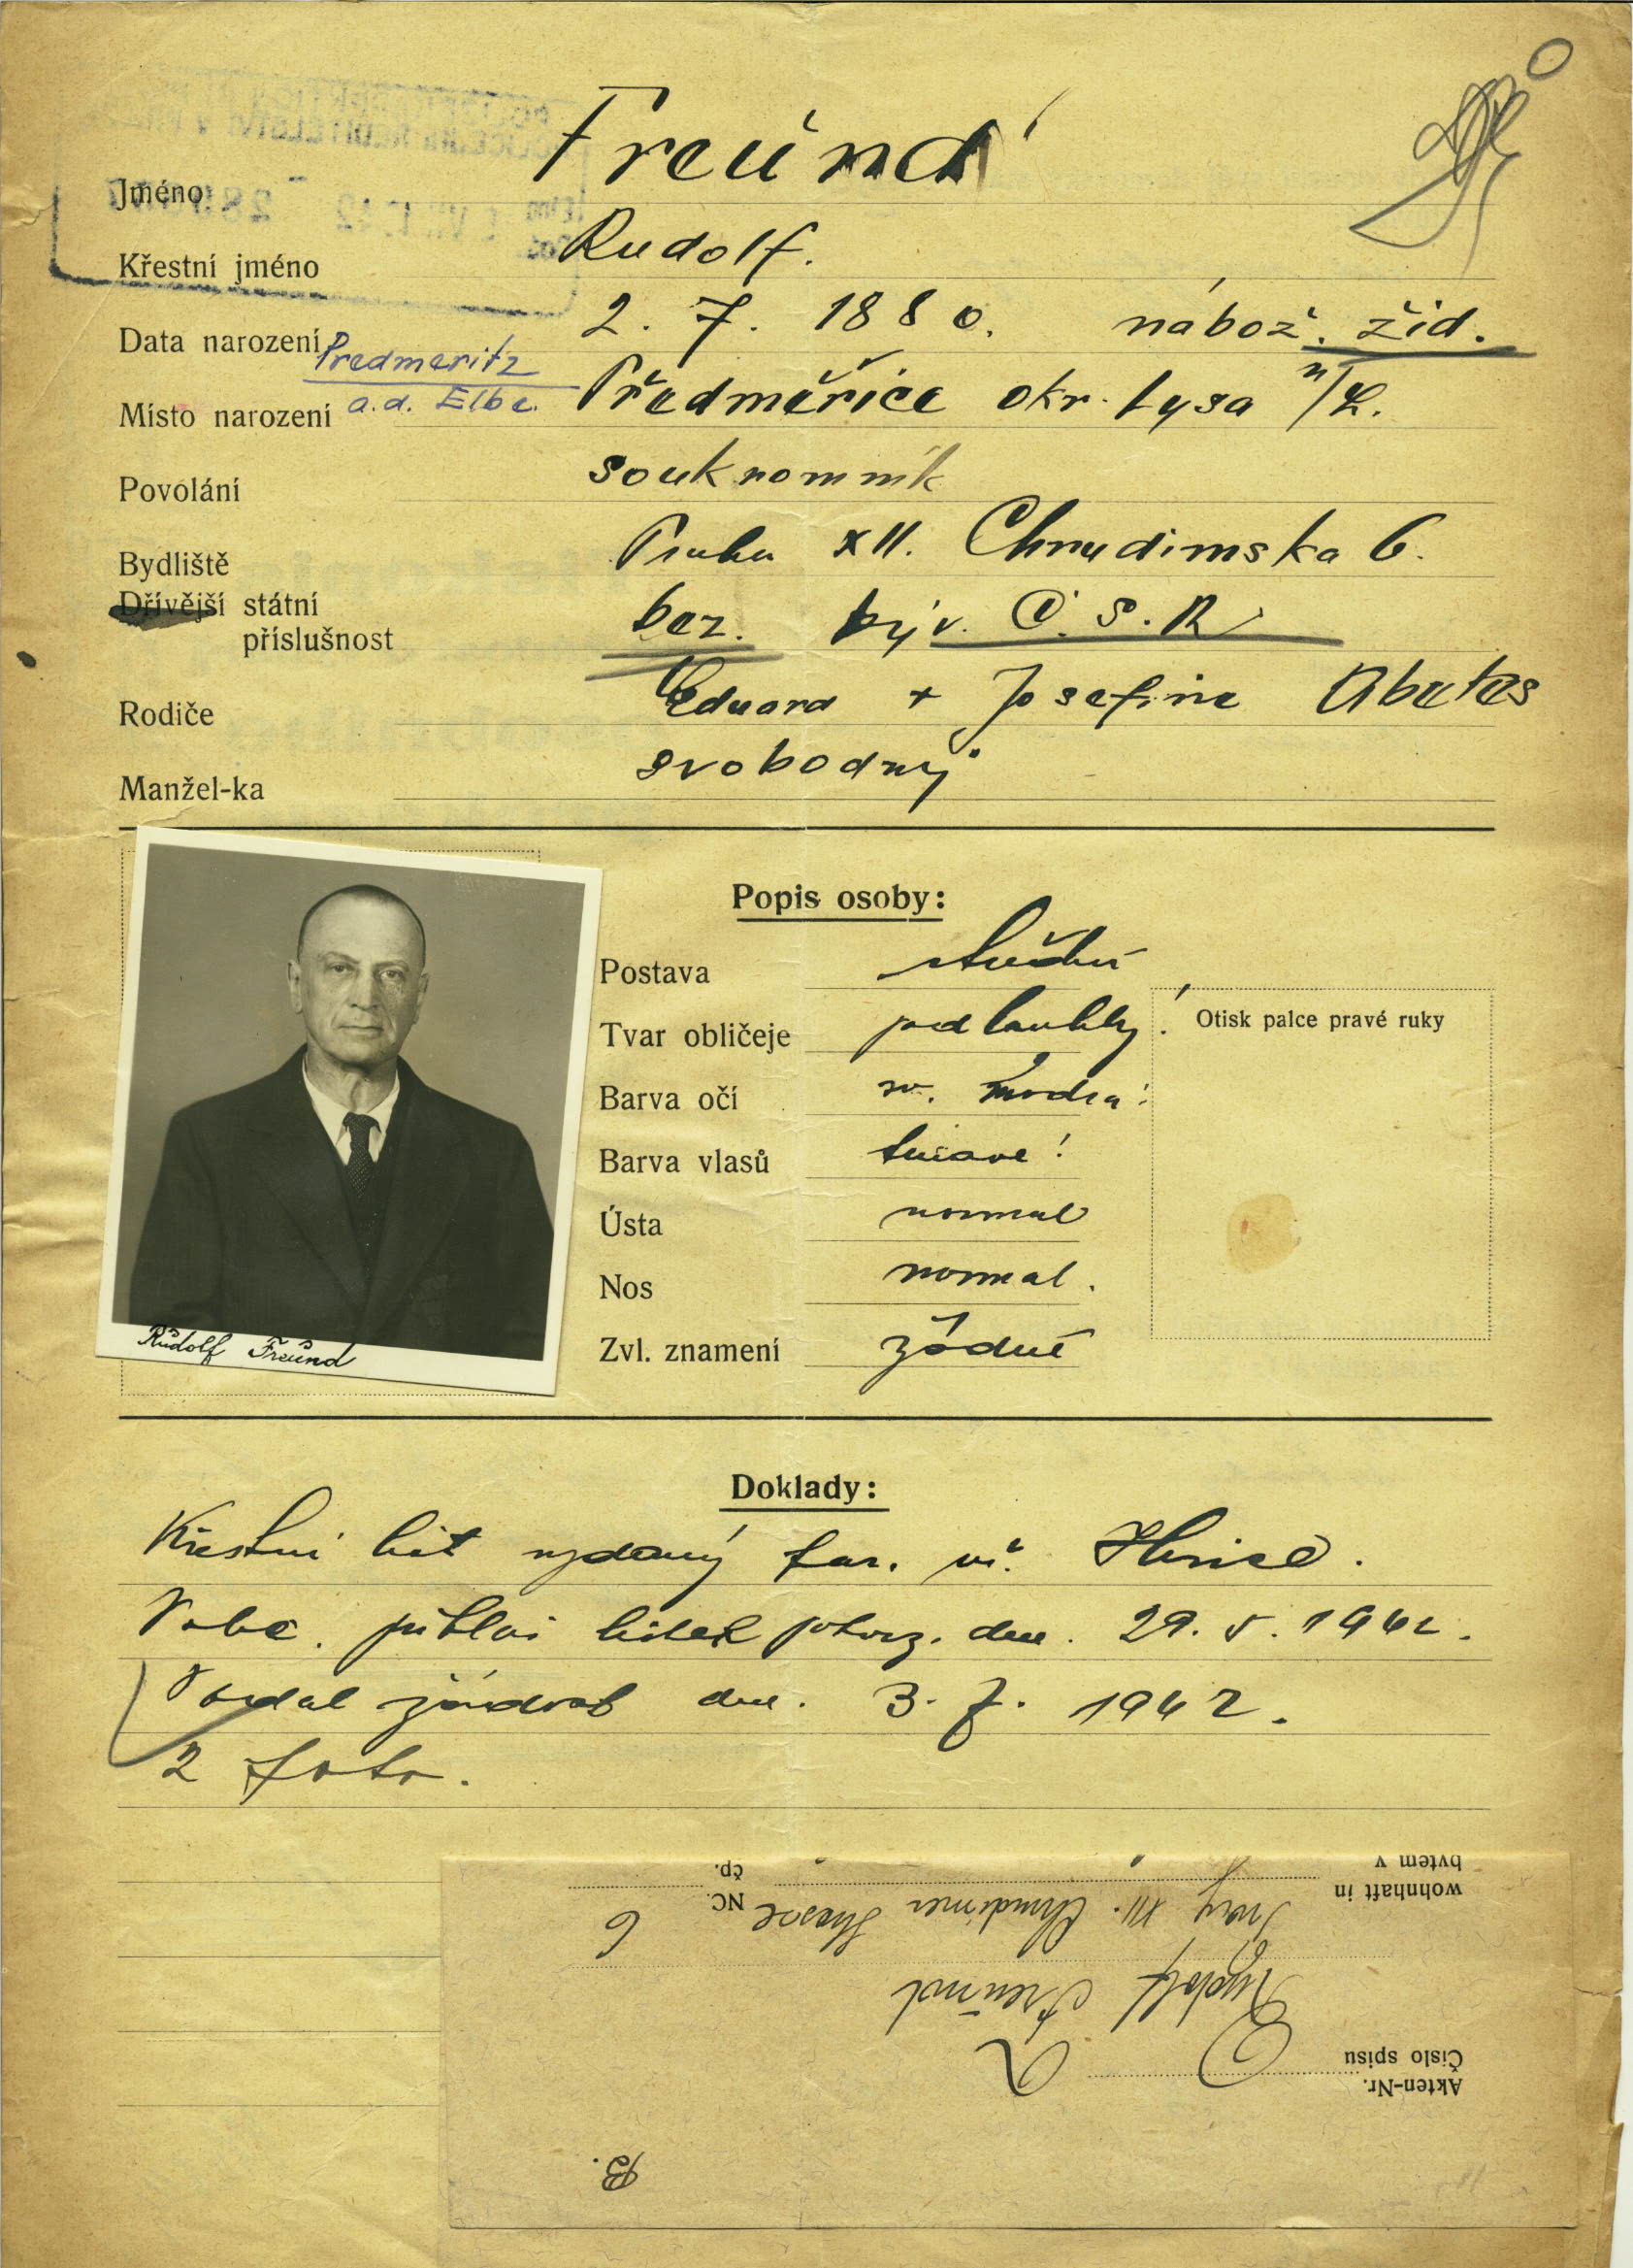 Freund
Jméno
Křestní jméno Rudolf.
Data narození 2. 7. 1880. nábož. žid.
Predmeritz
a.d. Elbe.
Místo narození Předměřice okr. Lysa n/L.
Povolání soukromník
Bydliště Praha XII. Chrudimska 6.
Dřívější státní
příslušnost bez. býv. Č.S.R
Rodiče Eduard + Josefine Abeles
Manžel-ka svobodný
Popis osoby:
Postava střední
Tvar obličeje podlouhlý
Barva očí sv. modra
Barva vlasů tmavé
Ústa normal
Nos normal.
Zvl. znamení žádné
Otisk palce pravé ruky
Rudolf Freund
Doklady:
Křestní list vydaný far. úř.
lístek potvrz. dne. 29. 5. 1942.
Podal žádost dne. 3. 7. 1942.
2 foto.
B.
Akten-Nr.
Číslo spisu
Rudolf Freund
wohnhaft in Prag XII. Chrudimer Strasse NC. 6
bytem v čp.